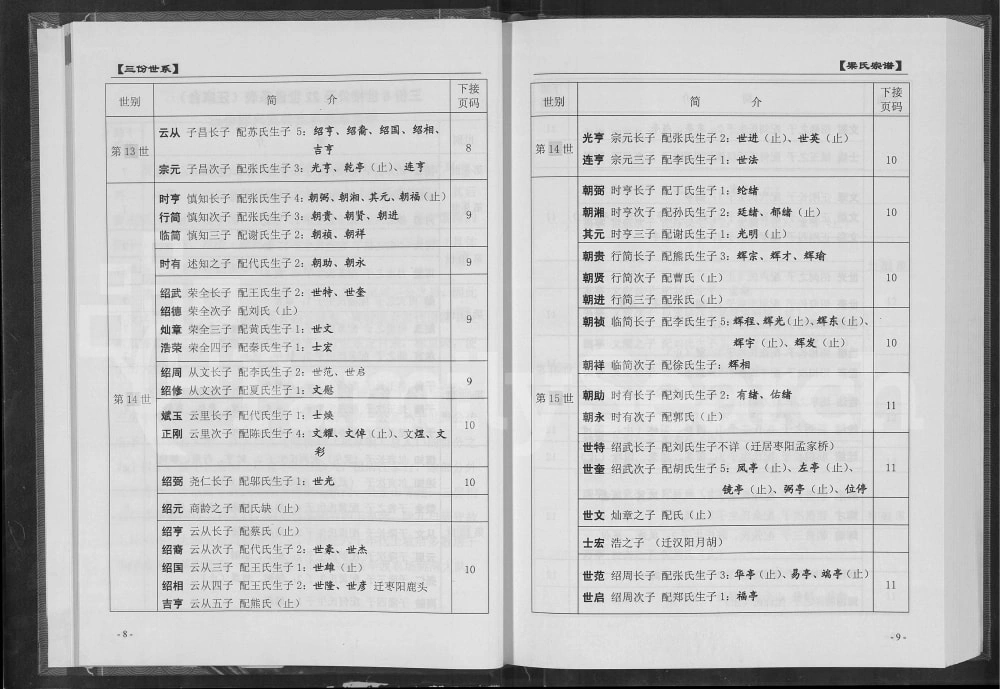 【三份世系】
世别 简 介 下接页码
第13世
云从 子昌长子 配苏氏生子5：绍亨、绍裔、绍国、绍相、
吉亨
8
宗元 子昌次子 配张氏生子3：光亨、乾亭（止）、连亨
第14世
时亨 慎知长子 配张氏生子4：朝弼、朝湘、其元、朝福（止）
行简 慎知次子 配张氏生子3：朝贵、朝贤、朝进
9
临简 慎知三子 配谢氏生子2：朝祯、朝祥
时有 述知之子 配代氏生子2：朝助、朝永
9
绍武 荣全长子 配王氏生子2：世特、世奎
绍德 荣全次子 配刘氏（止）
9
灿章 荣全三子 配黄氏生子1：世文
浩荣 荣全四子 配秦氏生子1：士宏
绍周 从文长子 配李氏生子2：世范、世启
9
绍修 从文次子 配夏氏生子1：文慰
斌玉 云里长子 配代氏生子1：士焕
10
正刚 云里次子 配陈氏生子4：文耀、文倬（止）、文煜、文
彩
绍弼 尧仁长子 配邬氏生子1：世光
10
绍元 商龄之子 配氏缺（止）
绍亨 云从长子 配蔡氏（止）
绍裔 云从次子 配代氏生子2：世豪、世杰
绍国 云从三子 配王氏生子1：世雄（止）
10
绍相 云从四子 配王氏生子2：世隆、世彦 迁枣阳鹿头
吉亨 云从五子 配熊氏（止）
-8-
【梁氏宗谱】
世别 简 介 下接页码
第14世
光亨 宗元长子 配张氏生子2：世进（止）、世英（止）
连亨 宗元三子 配李氏生子1：世法
10
第15世
朝弼 时亨长子 配丁氏生子1：纶绪
朝湘 时亨次子 配孙氏生子2：廷绪、郁绪（止）
10
其元 时亨三子 配谢氏生子1：光明（止）
朝贵 行简长子 配熊氏生子3：辉宗、辉才、辉瑜
朝贤 行简次子 配曹氏（止）
10
朝进 行简三子 配张氏（止）
朝祯 临简长子 配李氏生子5：辉程、辉光（止）、辉东（止）、
辉宇（止）、辉发（止）
10
朝祥 临简次子 配徐氏生子：辉相
朝助 时有长子 配刘氏生子2：有绪、佑绪
11
朝永 时有次子 配郭氏（止）
世特 绍武长子 配刘氏生子不详（迁居枣阳孟家桥）
世奎 绍武次子 配胡氏生子5：凤亭（止）、左亭（止）、
11
镜亭（止）、弼亭（止）、位停
世文 灿章之子 配氏（止）
士宏 浩之子 （迁汉阳月胡）
世范 绍周长子 配张氏生子3：华亭（止）、易亭、端亭（止）
11
世启 绍周次子 配郑氏生子1：福亭
-9-